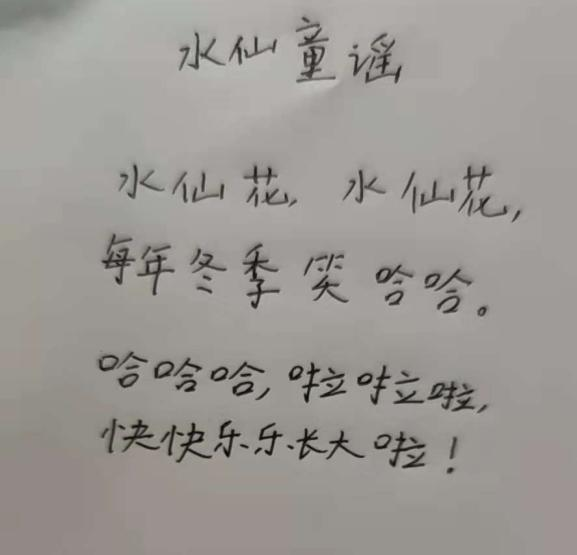 水仙童谣
水仙花,水仙花,
每年冬季笑哈哈。
哈哈哈,啦啦啦,
快快乐乐长大啦!